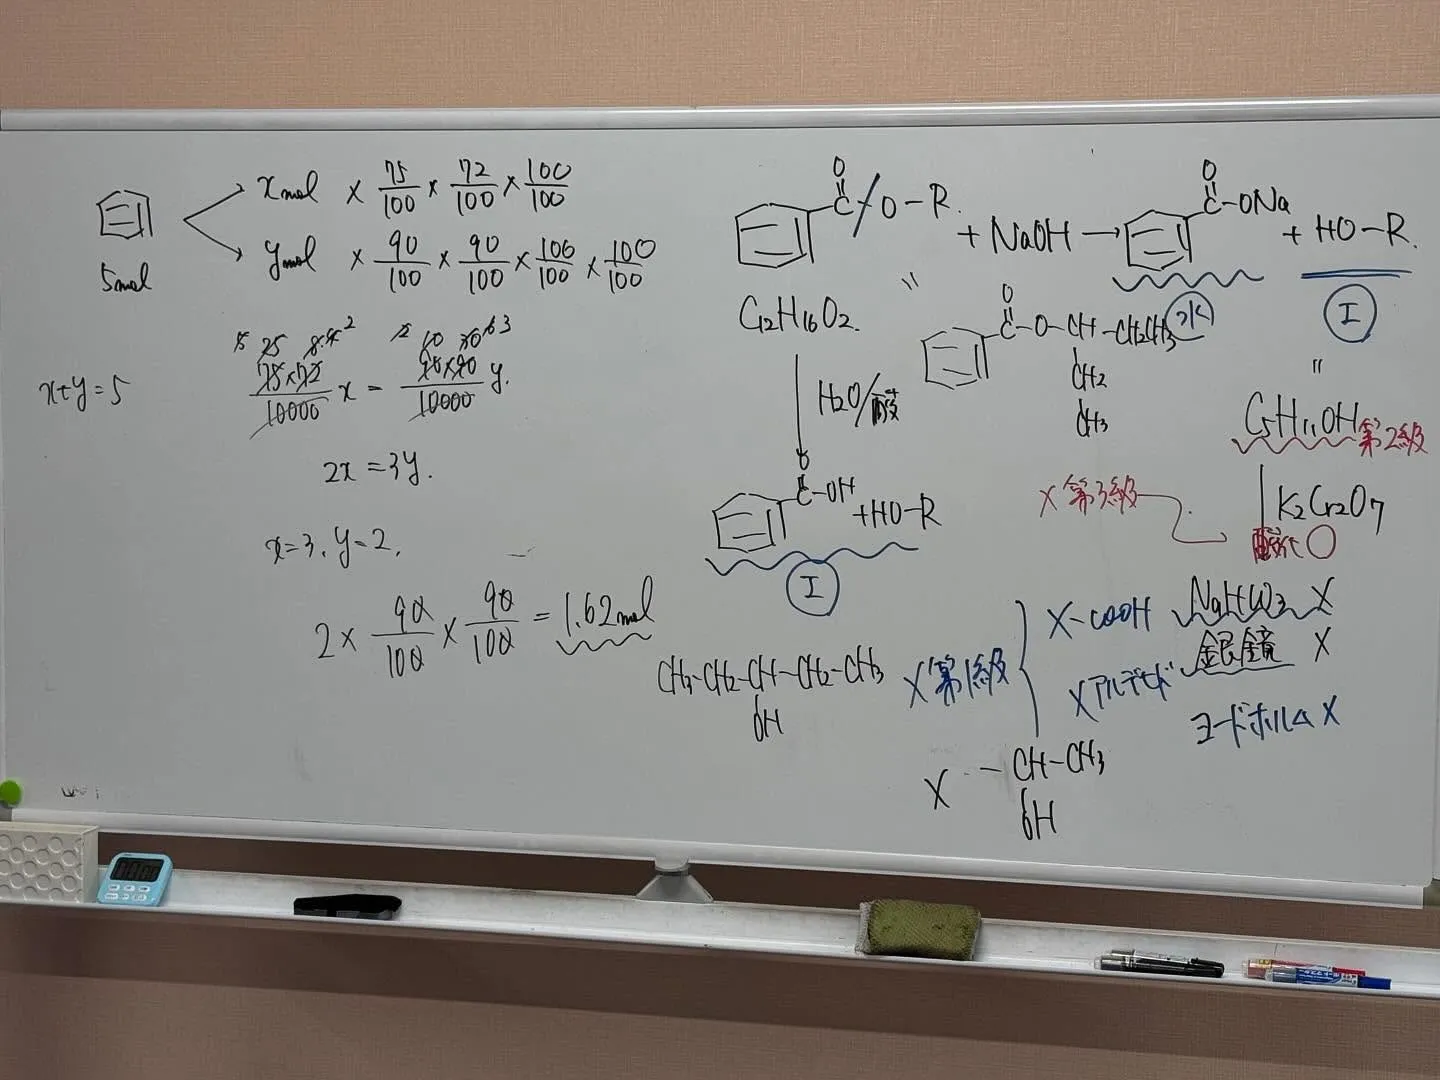 xmol × 75/100 × 72/100 × 100/100
5mol
ymol × 90/100 × 90/100 × 100/100 × 100/100
x+y=5
75×72/10000 x = 90×90/10000 y.
2x=3y.
x=3, y=2.
2× 90/100 × 90/100 = 1.62mol
O
C-O-R. + NaOH → C-ONa + HO-R.
O
C12H16O2.
水
I
O
C-O-CH-CH2CH3
CH2
CH3
H2O/酸
C5H11OH 第2級
K2Cr2O7
×第3級
酸化○
O
C-OH +HO-R
I
CH3-CH2-CH-CH2-CH3
OH
×第1級
×-COOH NaHCO3 ×
×アルデヒド 銀鏡 ×
ヨードホルム ×
× -CH-CH3
OH